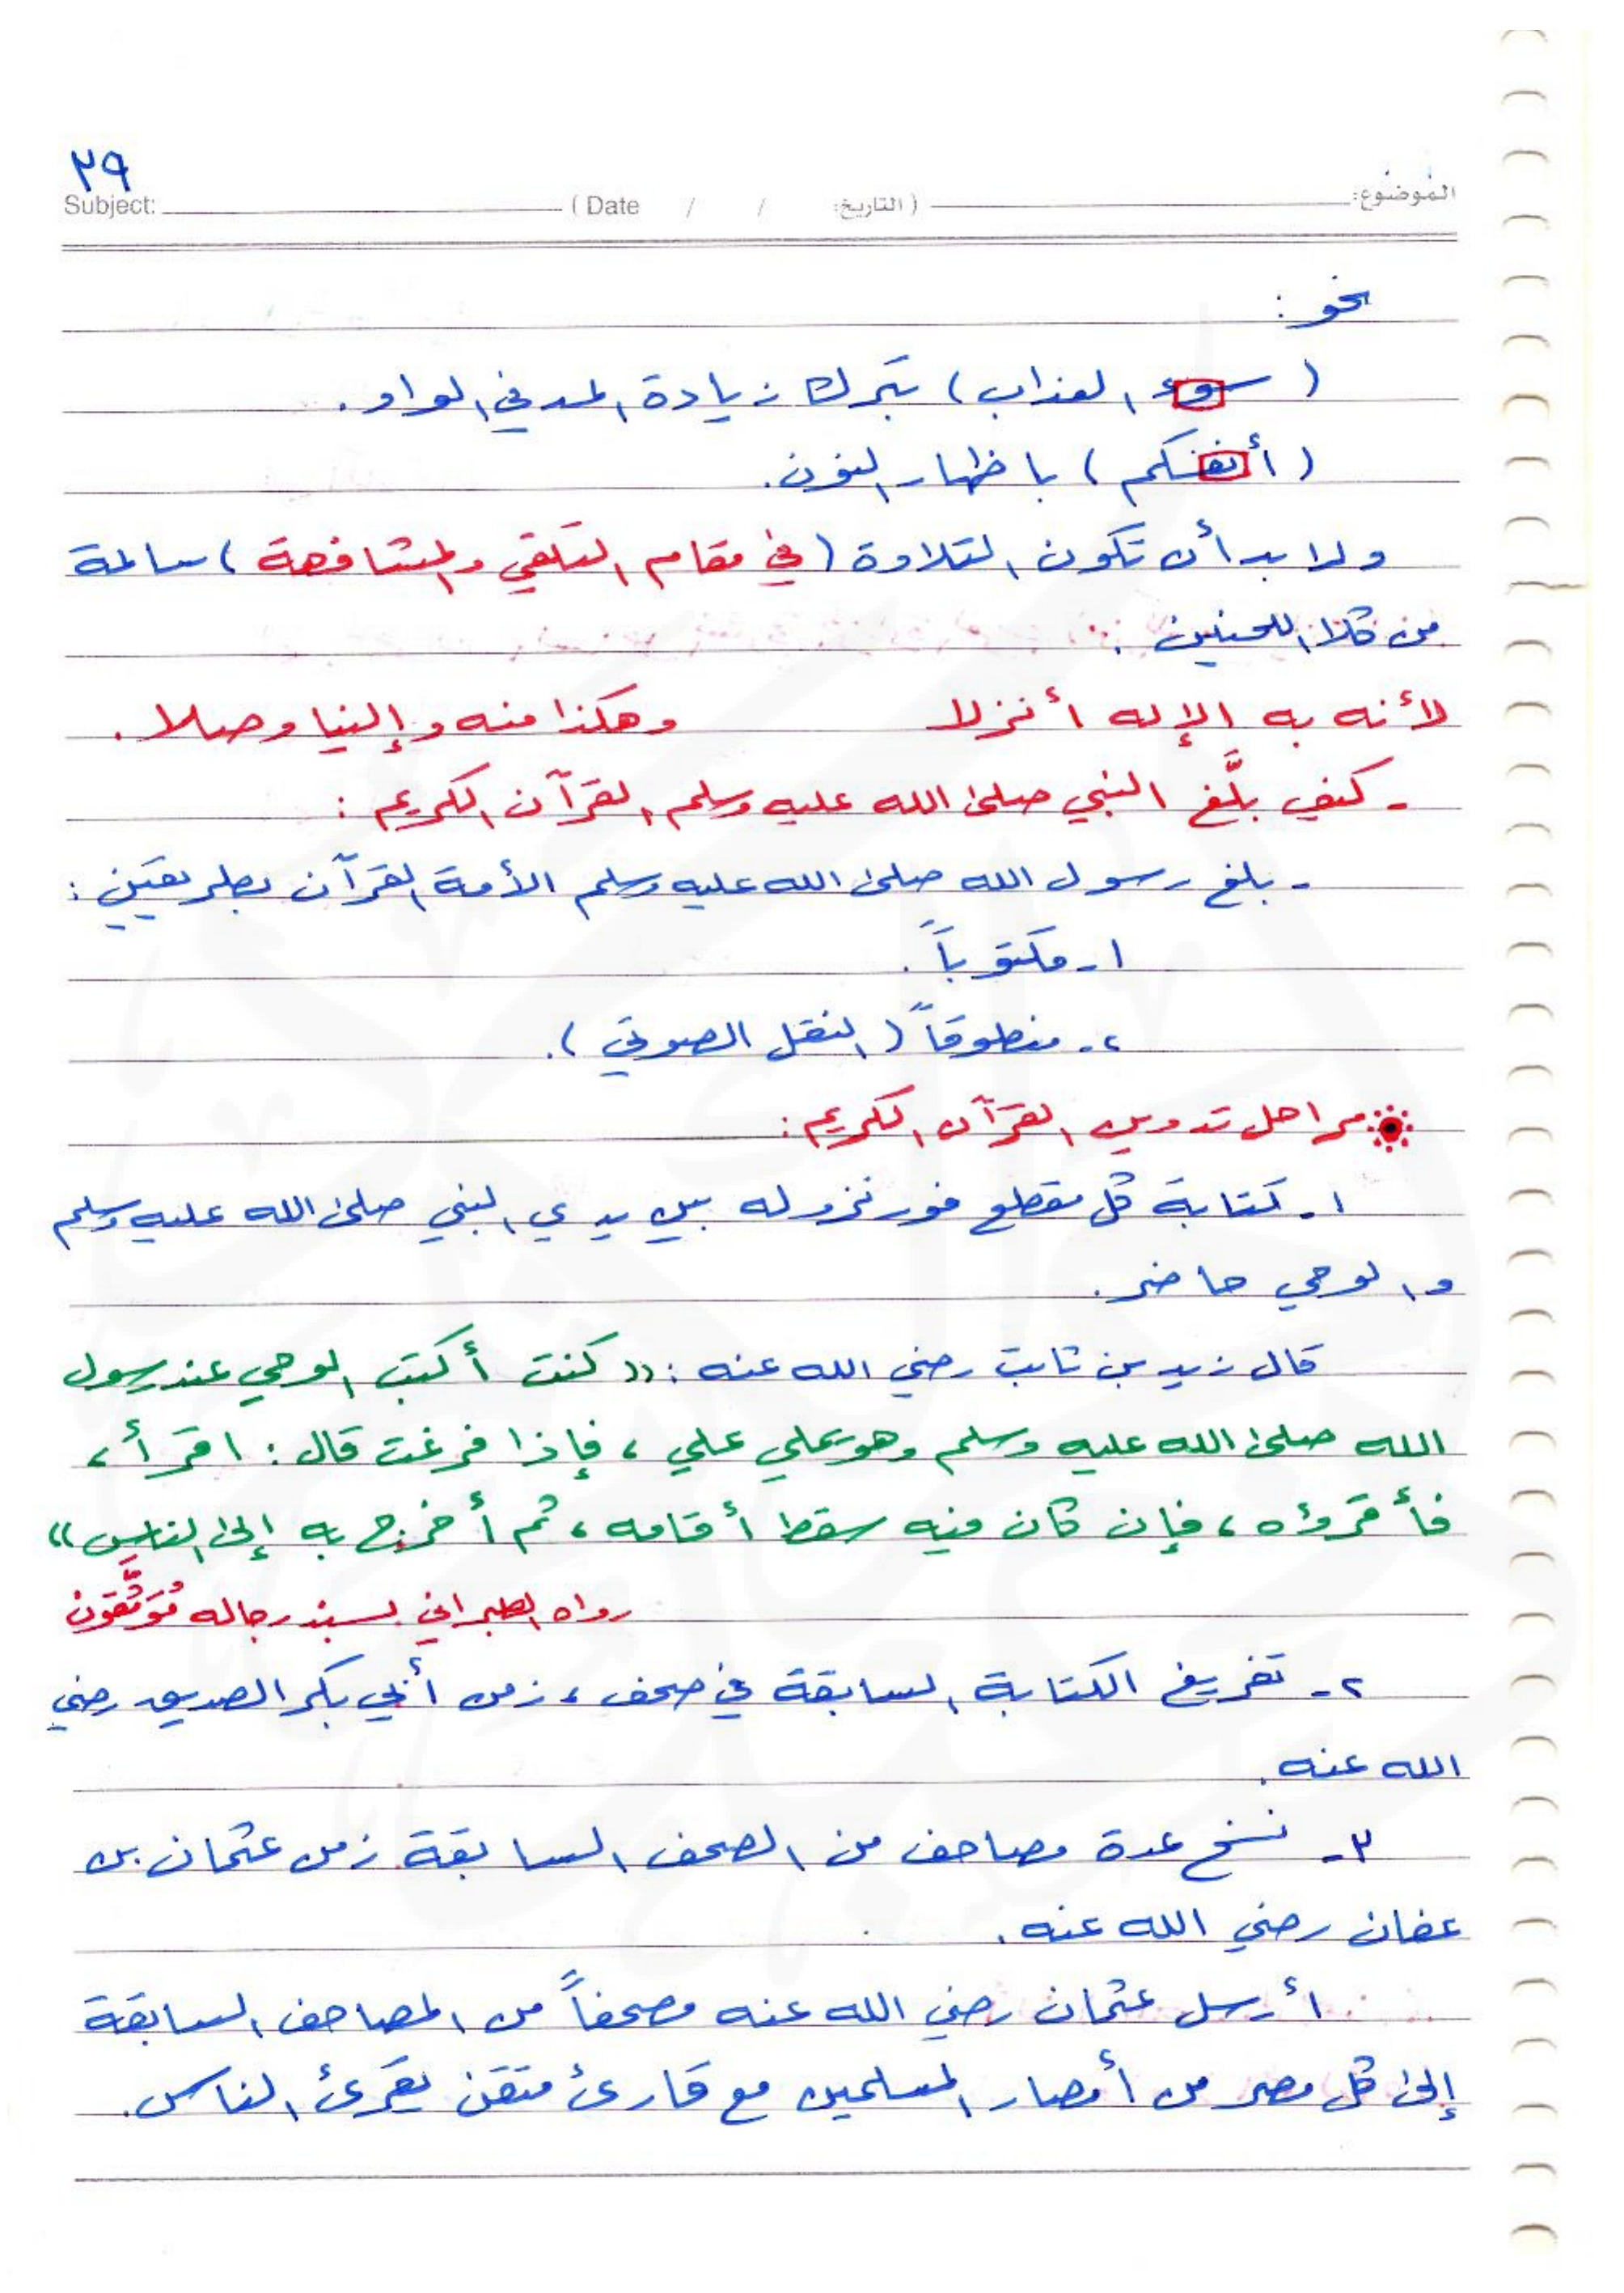 ٢٩
Subject: ( Date / / التاريخ ) الموضوع:
نحو :
( سوء العذاب ) بترك زيادة المد في الواو .
( أنفسكم ) بإظهار النون .
ولا بد أن تكون التلاوة ( في مقام التلقي والمشافهة ) سالمة
من كلا اللحنين .
لأنه به الإله أنزلا وهكذا منه وإلينا وصلا .
- كيف بلَّغ النبي صلى الله عليه وسلم القرآن الكريم :
- بلغ رسول الله صلى الله عليه وسلم الأمة القرآن بطريقتين :
١- مكتوباً .
٢- منطوقاً ( النقل الصوتي ) .
مراحل تدوين القرآن الكريم :
١- كتابة كل مقطع فور نزوله بين يدي النبي صلى الله عليه وسلم
والوحي حاضر .
قال زيد بن ثابت رضي الله عنه : (( كنت أكتب الوحي عند رسول
الله صلى الله عليه وسلم وهو يملي علي ، فإذا فرغت قال : اقرأ ،
فأقرؤه ، فإن كان فيه سقط أقامه ، ثم أخرج به إلى الناس ))
رواه الطبراني بسند رجاله مُوَثَّقون
٢- تفريغ الكتابة السابقة في صحف ، زمن أبي بكر الصديق رضي
الله عنه .
٣- نسخ عدة مصاحف من الصحف السابقة زمن عثمان بن
عفان رضي الله عنه .
أرسل عثمان رضي الله عنه مصحفاً من المصاحف السابقة
إلى كل مصر من أمصار المسلمين مع قارئ متقن يقرئ الناس .